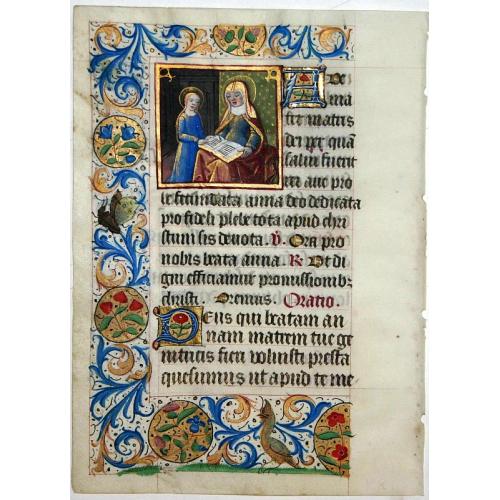 A De
ma
tri matris
dei per quā
salus fuerit
ert aue pro
le fecundata anna deo dedicata
pro fideli plebe tota apud chri
stum sis deuota. V. Ora pro
nobis beata anna. R. Vt di
gni efficiamur promissionibz
christi. Oremus. Oratio.
Deus qui beatam an
nam matrem tue ge
nitricis fieri voluisti presta
quesumus ut apud te me